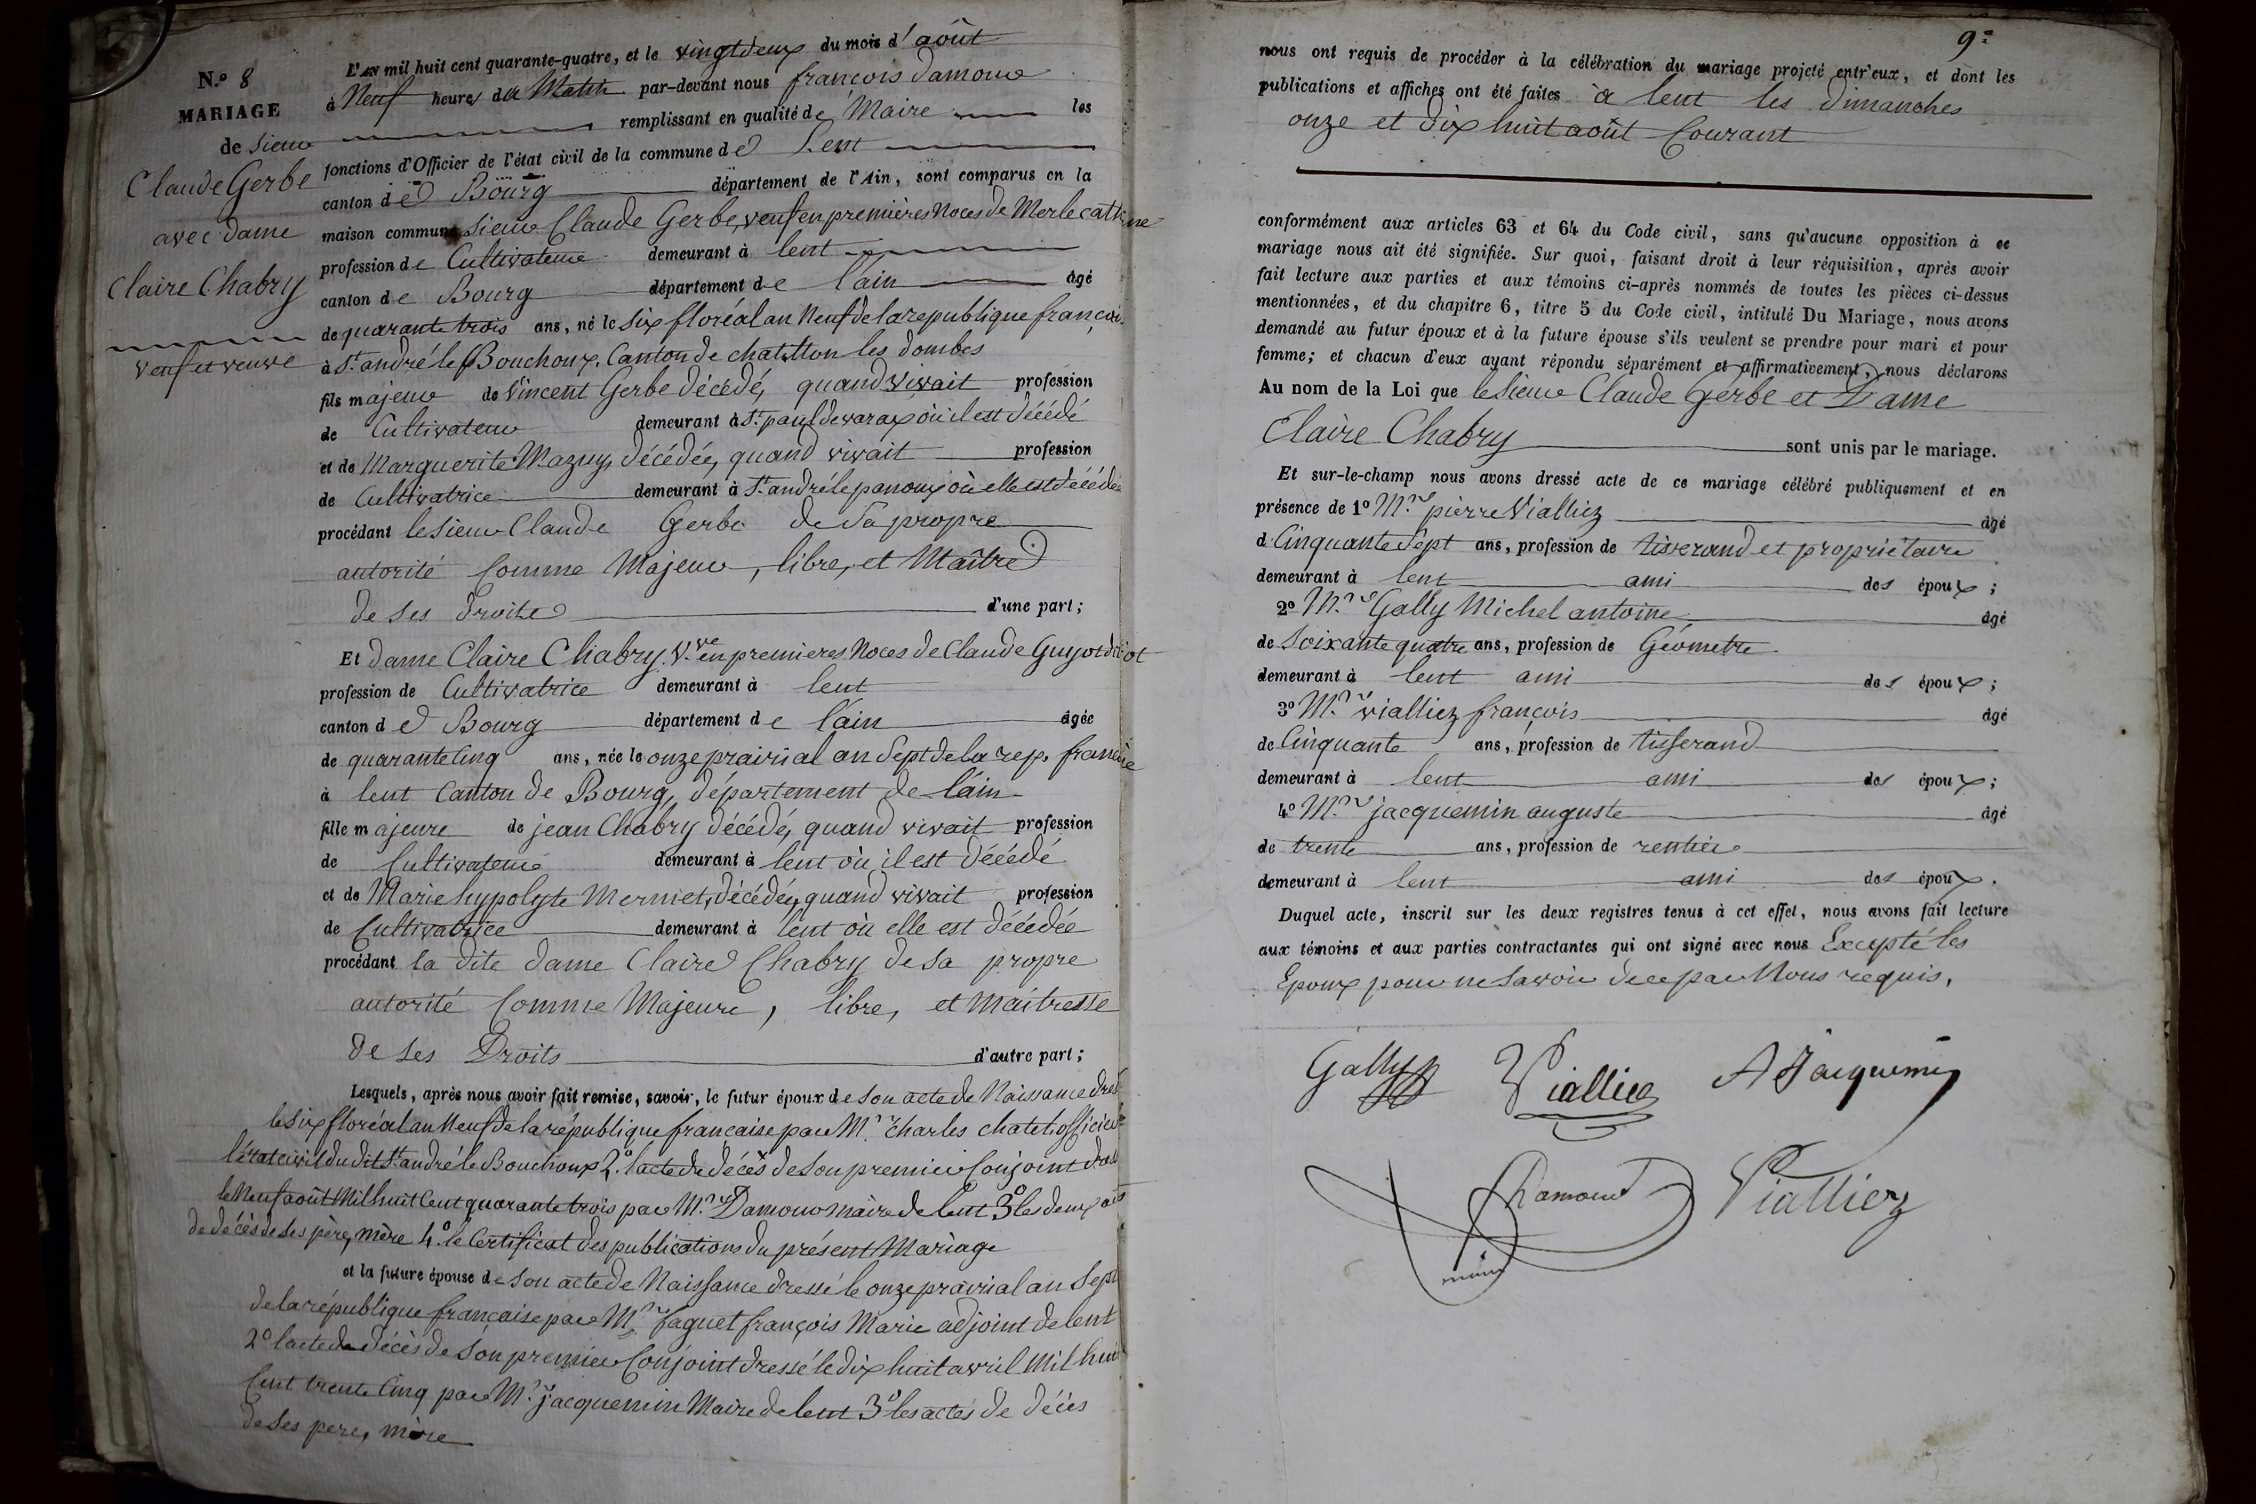 N.º 8
MARIAGE
de sieur
Claude Gerbe
avec dame
Claire Chabry
veuf et veuve
L'AN mil huit cent quarante-quatre, et le vingt deux du mois d'août
à Neuf heures du Matin par-devant nous françois damour
remplissant en qualité de Maire les
fonctions d'Officier de l'état civil de la commune de Lent
canton de Bourg département de l'Ain, sont comparus en la
maison commune sieur Claude Gerbe, veuf en premières Noces de Merle cathne
profession de Cultivateur demeurant à lent
canton de Bourg département de l'ain âgé
de quarante trois ans, né le six floréal an Neuf de la republique françai
à St. andré le Bouchoux, Canton de chatillon les dombes
fils majeur de Vincent Gerbe décédé, quand vivait profession
de Cultivateur demeurant à St. paul de varax où il est décédé
et de Marguerite Mazuy, décédée, quand vivait profession
de Cultivatrice demeurant à St. andré le panoux où elle est décédée
procédant le sieur Claude Gerbe de Sa propre
autorité Comme Majeur, libre, et Maître
de ses droits d'une part;
Et dame Claire Chabry Vve. en premieres Noces de Claude Guyot
profession de Cultivatrice demeurant à lent
canton de Bourg département de l'ain âgée
de quarante Cinq ans, née le onze prairial an Sept de la rep. francaise
à lent Canton de Bourg, département de l'ain
fille majeure de jean Chabry décédé, quand vivait profession
de Cultivateur demeurant à lent où il est décédé
et de Marie hypolyte Mermet, décédée, quand vivait profession
de Cultivatrice demeurant à lent où elle est décédée
procédant la dite dame Claire Chabry de sa propre
autorité Comme Majeure, libre, et Maîtresse
de ses Droits d'autre part;
Lesquels, après nous avoir fait remise, savoir, le futur époux de son acte de Naissance dres
le six floréal an Neuf de la république française par Mr. charles chatel officier
l'état civil du dit St. andré le Bouchoux 2.º l'acte de décès de son premier Conjoint
le Neuf août Mil huit Cent quarante trois par Mr. Damour maire de lent 3º les deux
de décès de ses père, mère 4.º le Certificat des publications du présent Mariage
et la future épouse de son acte de Naissance dressé le onze prairial an Sept
de la république française par Mr. faguet françois Marie adjoint de lent
2º l'acte de décès de son premier Conjoint dressé le dix huit avril Mil huit
Cent trente Cinq par Mr. jacquemin Maire de lent 3º les actes de décès
de ses pere, mère
9e
nous ont requis de procéder à la célébration du mariage projeté entr'eux, et dont les
publications et affiches ont été faites à lent les dimanches
onze et dix huit août Courant
conformément aux articles 63 et 64 du Code civil, sans qu'aucune opposition à ce
mariage nous ait été signifiée. Sur quoi, faisant droit à leur réquisition, après avoir
fait lecture aux parties et aux témoins ci-après nommés de toutes les pièces ci-dessus
mentionnées, et du chapitre 6, titre 5 du Code civil, intitulé Du Mariage, nous avons
demandé au futur époux et à la future épouse s'ils veulent se prendre pour mari et pour
femme; et chacun d'eux ayant répondu séparément et affirmativement, nous déclarons
Au nom de la Loi que le sieur Claude Gerbe et Dame
Claire Chabry sont unis par le mariage.
Et sur-le-champ nous avons dressé acte de ce mariage célébré publiquement et en
présence de 1º Mr. pierre Vialliez âgé
d Cinquante Sept ans, profession de tisserand et propriétaire
demeurant à lent ami des époux;
2º Mr. Gally Michel antoine âgé
de Soixante quatre ans, profession de Géometre
demeurant à lent ami des époux;
3º Mr. vialliez françois âgé
de Cinquante ans, profession de tisserand
demeurant à lent ami des époux;
4º Mr. jacquemin auguste âgé
de trente ans, profession de rentier
demeurant à lent ami des époux.
Duquel acte, inscrit sur les deux registres tenus à cet effet, nous avons fait lecture
aux témoins et aux parties contractantes qui ont signé avec nous Excepté les
Epoux pour ne savoir de ce par Nous requis.
Gally Vialliez A Jacquemin
Damour Vialliez
maire